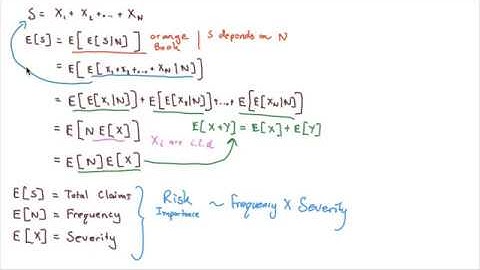 S = X₁ + X₂ + ... + X_N
E[S] = E[ E[S|N] ] orange Book | S depends on N
= E[ E[X₁+X₂+...+X_N|N] ]
= E[E[X₁|N]] + E[E[X₂|N]] + ... + E[E[X_N|N]]
= E[N E[X]] X_i are i.i.d E[X+Y] = E[X] + E[Y]
= E[N]E[X]
E[S] = Total Claims
E[N] = Frequency
E[X] = Severity
Risk Importance ~ Frequency X Severity